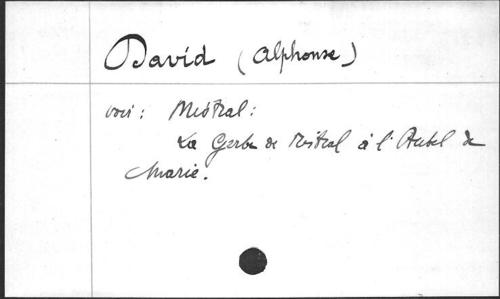 David (Alphonse)
voir : Mistral :
La Gerbe de Mistral à l'Autel de
Marie.